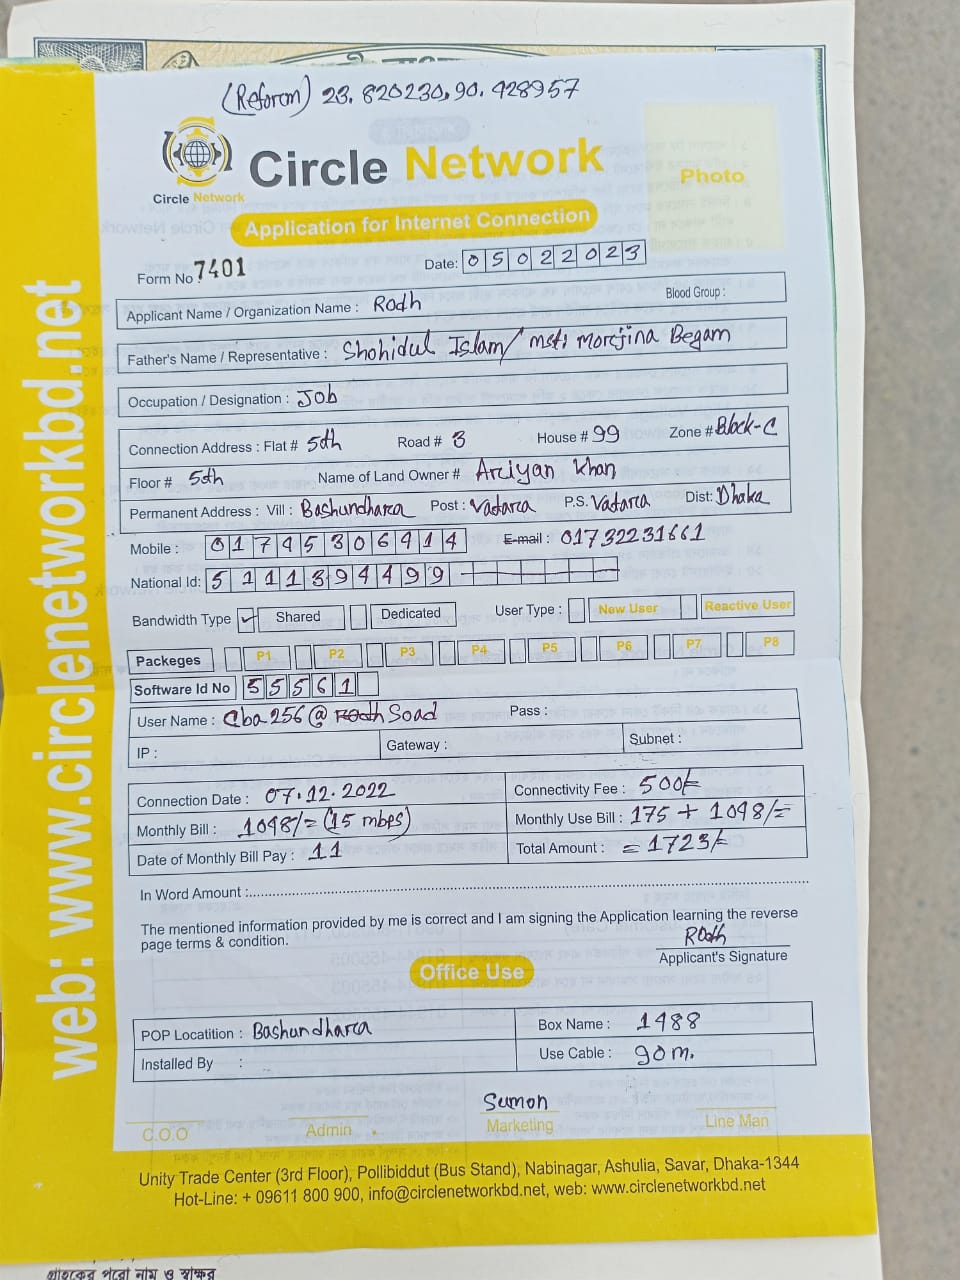 (Reform) 23.820230,90.428957
Circle Network
Circle Network
Photo
Application for Internet Connection
Form No : 7401
Date: 05022023
Applicant Name / Organization Name : Rodh
Blood Group :
Father's Name / Representative : Shohidul Islam/ msti morejina Begam
Occupation / Designation : Job
Connection Address : Flat # 5th Road # 3 House # 99 Zone # Block-C
Floor # 5th Name of Land Owner # Ariyan khan
Permanent Address : Vill : Bashundhara Post : Vatara P.S. Vatara Dist: Dhaka
Mobile : 01745306914 E-mail : 01732231661
National Id: 5111394499
Bandwidth Type Shared Dedicated User Type : New User Reactive User
Packeges P1 P2 P3 P4 P5 P6 P7 P8
Software Id No 55561
User Name : Cba256@ Rodh Soad Pass :
IP : Gateway : Subnet :
Connection Date : 07.12.2022 Connectivity Fee : 500/-
Monthly Bill : 1098/= (15 mbps) Monthly Use Bill : 175 + 1098/=
Date of Monthly Bill Pay : 11 Total Amount : = 1723/-
In Word Amount :
The mentioned information provided by me is correct and I am signing the Application learning the reverse
page terms & condition.
Rodh
Applicant's Signature
Office Use
POP Locatition : Bashundhara Box Name : 1488
Installed By : Use Cable : 90m.
Sumon
C.O.O Admin Marketing Line Man
Unity Trade Center (3rd Floor), Pollibiddut (Bus Stand), Nabinagar, Ashulia, Savar, Dhaka-1344
Hot-Line: + 09611 800 900, info@circlenetworkbd.net, web: www.circlenetworkbd.net
web: www.circlenetworkbd.net
গ্রাহকের পুরো নাম ও স্বাক্ষর